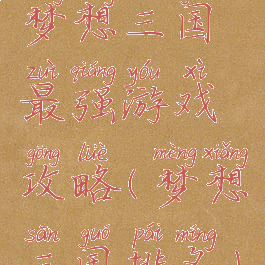 梦想三国
zuì qiáng yóu xì
最强游戏
gōng lüè mèng xiǎng
攻略(梦想
sān guó pái míng
三国排名)